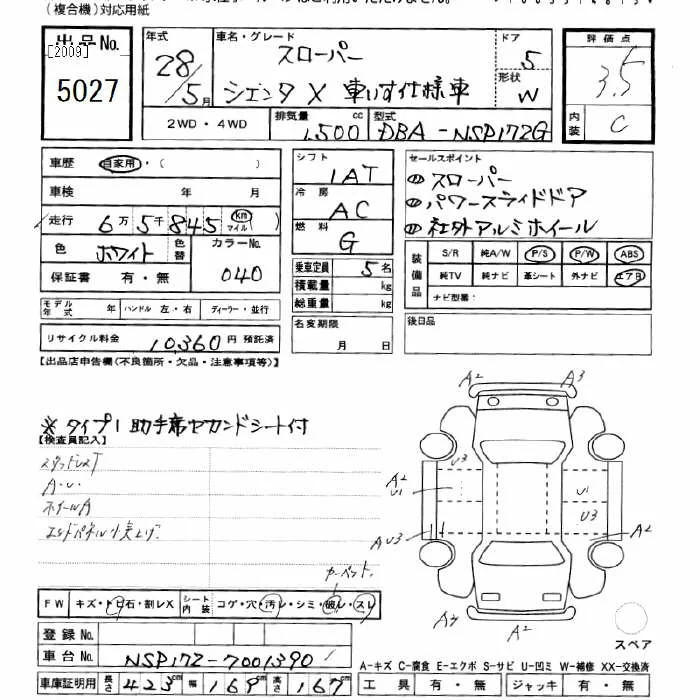 (複合機)対応用紙
出品No. 年式 車名・グレード スローパー ドア 5 評価点
[2009]
5027 28/5月 シエンタ X 車いす仕様車 形状 W 3.5
2WD・4WD 排気量 1,500 cc 型式 DBA-NSP172G 内装 C
車歴 自家用・( ) シフト 1AT セールスポイント
車検 年 月 冷房 AC ① スローパー
走行 6万5千845 km マイル ( ) ② パワースライドドア
燃料 G ③ 社外アルミホイール
色 ホワイト 色替 カラーNo. 040
保証書 有・無 乗車定員 5名
積載量 kg
総重量 kg
装備品 S/R 純A/W P/S P/W ABS
純TV 純ナビ 革シート 外ナビ エアB
ナビ型番:
モデル年式 年 ハンドル 左・右 ディーラー・並行
名変期限 月 日 後日品
リサイクル料金 10,360 円 預託済
【出品店申告欄(不良箇所・欠品・注意事項等)】
※タイプ1 助手席セカンドシート付
【検査員記入】
A2 A3
U3
A2
U1 U1
U3
A U3 A2
A・U・
ホイールA
エンドパネル小突上げ
カーペット
FW キズ・トビ石・割レX シート内装 コゲ・穴・汚レ・シミ・破レ・スレ
A3 A2
登録No. スペア
車台No. NSP172-7001390
A-キズ C-腐食 E-エクボ S-サビ U-凹ミ W-補修 XX-交換済
車庫証明用 長さ 423cm 幅 169cm 高さ 167cm 工具 有・無 ジャッキ 有・無